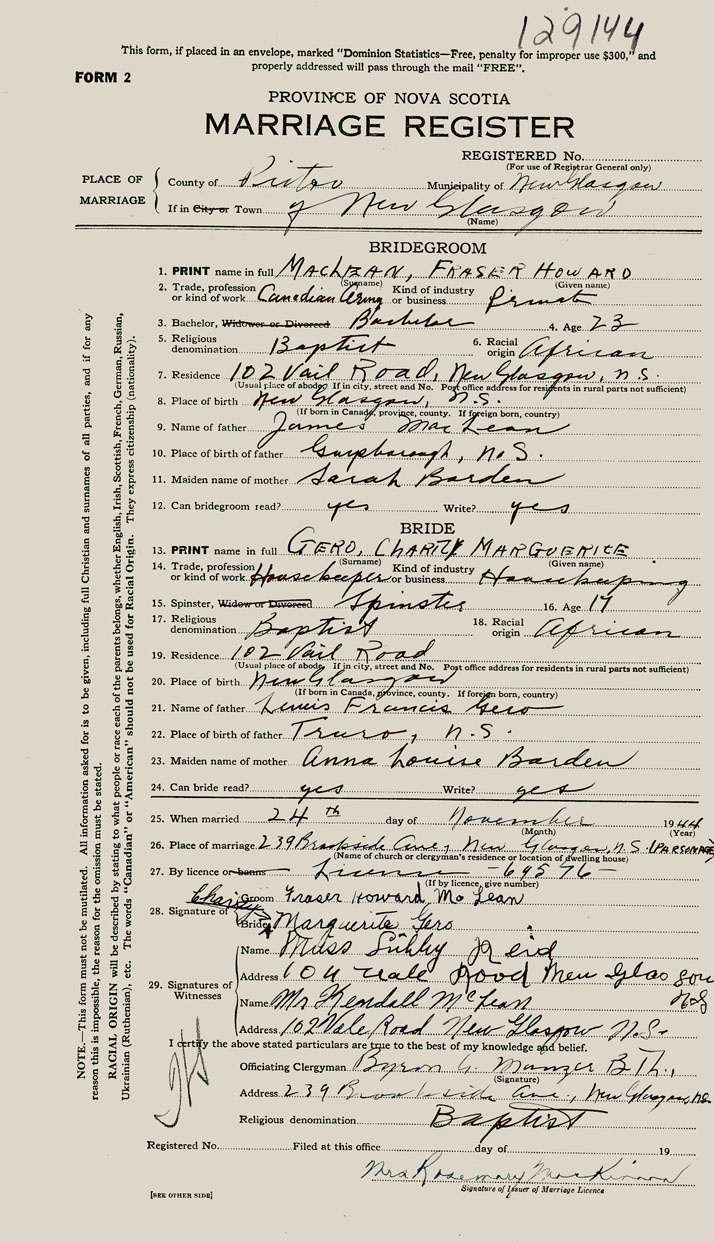 129144
This form, if placed in an envelope, marked "Dominion Statistics—Free, penalty for improper use $300," and
properly addressed will pass through the mail "FREE".
FORM 2
PROVINCE OF NOVA SCOTIA
MARRIAGE REGISTER
REGISTERED No.
(For use of Registrar General only)
PLACE OF MARRIAGE
County of Pictou Municipality of New Glasgow
If in City or Town of New Glasgow
(Name)
BRIDEGROOM
1. PRINT name in full MACLEAN, FRASER HOWARD
(Surname) (Given name)
2. Trade, profession or kind of work Canadian Army Kind of industry or business Private
3. Bachelor, Widower or Divorced Bachelor 4. Age 23
5. Religious denomination Baptist 6. Racial origin African
7. Residence 102 Vail Road, New Glasgow, N.S.
(Usual place of abode. If in city, street and No. Post office address for residents in rural parts not sufficient)
8. Place of birth New Glasgow, N.S.
(If born in Canada, province, county. If foreign born, country)
9. Name of father James MacLean
10. Place of birth of father Guysborough, N.S.
11. Maiden name of mother Sarah Borden
12. Can bridegroom read? yes Write? yes
BRIDE
13. PRINT name in full GERO, CHARITY MARGUERITE
(Surname) (Given name)
14. Trade, profession or kind of work Housekeeper Kind of industry or business Housekeeping
15. Spinster, Widow or Divorced Spinster 16. Age 17
17. Religious denomination Baptist 18. Racial origin African
19. Residence 102 Vail Road
(Usual place of abode. If in city, street and No. Post office address for residents in rural parts not sufficient)
20. Place of birth New Glasgow
(If born in Canada, province, county. If foreign born, country)
21. Name of father Lewis Francis Gero
22. Place of birth of father Truro, N.S.
23. Maiden name of mother Anna Louise Borden
24. Can bride read? yes Write? yes
25. When married 24th day of November 1944
(Month) (Year)
26. Place of marriage 239 Brookside Ave, New Glasgow, N.S. (PARSONAGE)
(Name of church or clergyman's residence or location of dwelling house)
27. By licence or banns License -69576-
(If by licence, give number)
28. Signature of
Groom Fraser Howard McLean
Charity
Bride Marguerite Gero
29. Signatures of Witnesses
Name Miss Reid
Address 104 Vale Road New Glasgow N.S
Name Mr Kendall McLean
Address 102 Vale Road New Glasgow N.S.
I certify the above stated particulars are true to the best of my knowledge and belief.
Officiating Clergyman Byron G. Manzer B.Th.,
(Signature)
Address 239 Brookside Ave., New Glasgow, N.S.
Religious denomination Baptist
Registered No. Filed at this office day of 19
Mrs Rosemary MacKinnon
Signature of Issuer of Marriage Licence
[SEE OTHER SIDE]
NOTE.—This form must not be mutilated. All information asked for is to be given, including full Christian and surnames of all parties, and if for any
reason this is impossible, the reason for the omission must be stated.
RACIAL ORIGIN will be described by stating to what people or race each of the parents belongs, whether English, Irish, Scottish, French, German, Russian,
Ukrainian (Ruthenian), etc. The words "Canadian" or "American" should not be used for Racial Origin. They express citizenship (nationality).